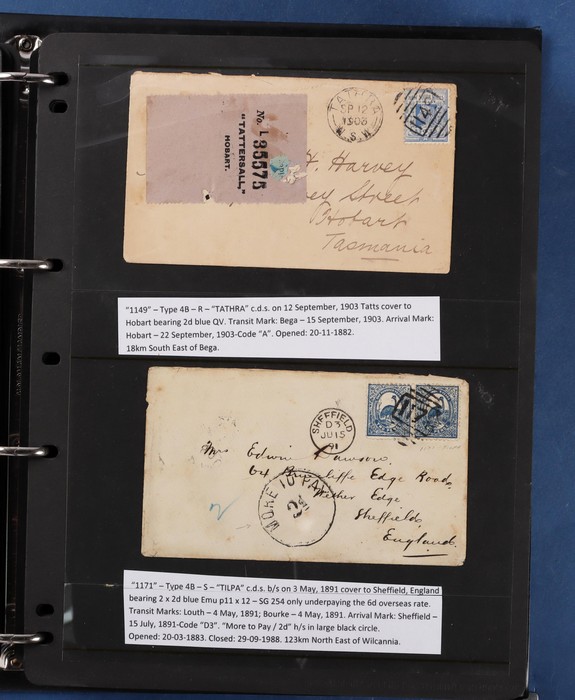 No. L 35575
"TATTERSALL,"
HOBART.
TATHRA
SP 12
1903
N.S.W
H. Harvey
ey Street
Hobart
Tasmania
"1149" – Type 4B – R – "TATHRA" c.d.s. on 12 September, 1903 Tatts cover to
Hobart bearing 2d blue QV. Transit Mark: Bega – 15 September, 1903. Arrival Mark:
Hobart – 22 September, 1903-Code "A". Opened: 20-11-1882.
18km South East of Bega.
SHEFFIELD
D3
JU 15
91
Mrs Edwin Dawson,
64 Brincliffe Edge Road,
Nether Edge
Sheffield,
England.
MORE TO PAY
2d
2
"1171" – Type 4B – S – "TILPA" c.d.s. b/s on 3 May, 1891 cover to Sheffield, England
bearing 2 x 2d blue Emu p11 x 12 – SG 254 only underpaying the 6d overseas rate.
Transit Marks: Louth – 4 May, 1891; Bourke – 4 May, 1891. Arrival Mark: Sheffield –
15 July, 1891-Code "D3". "More to Pay / 2d" h/s in large black circle.
Opened: 20-03-1883. Closed: 29-09-1988. 123km North East of Wilcannia.